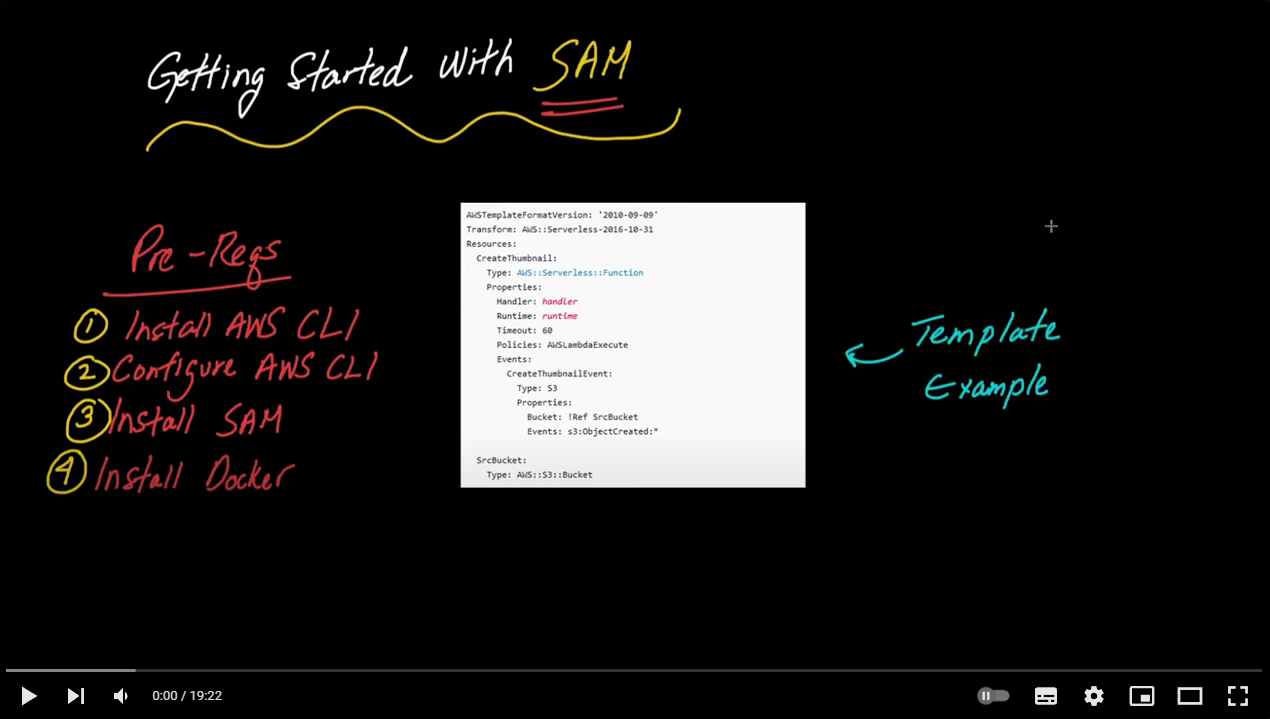 Getting Started With SAM
Pre-Reqs
1 Install AWS CLI
2 Configure AWS CLI
3 Install SAM
4 Install Docker
AWSTemplateFormatVersion: '2010-09-09'
Transform: AWS::Serverless-2016-10-31
Resources:
  CreateThumbnail:
    Type: AWS::Serverless::Function
    Properties:
      Handler: handler
      Runtime: runtime
      Timeout: 60
      Policies: AWSLambdaExecute
      Events:
        CreateThumbnailEvent:
          Type: S3
          Properties:
            Bucket: !Ref SrcBucket
            Events: s3:ObjectCreated:*
  SrcBucket:
    Type: AWS::S3::Bucket
Template
Example
0:00 / 19:22